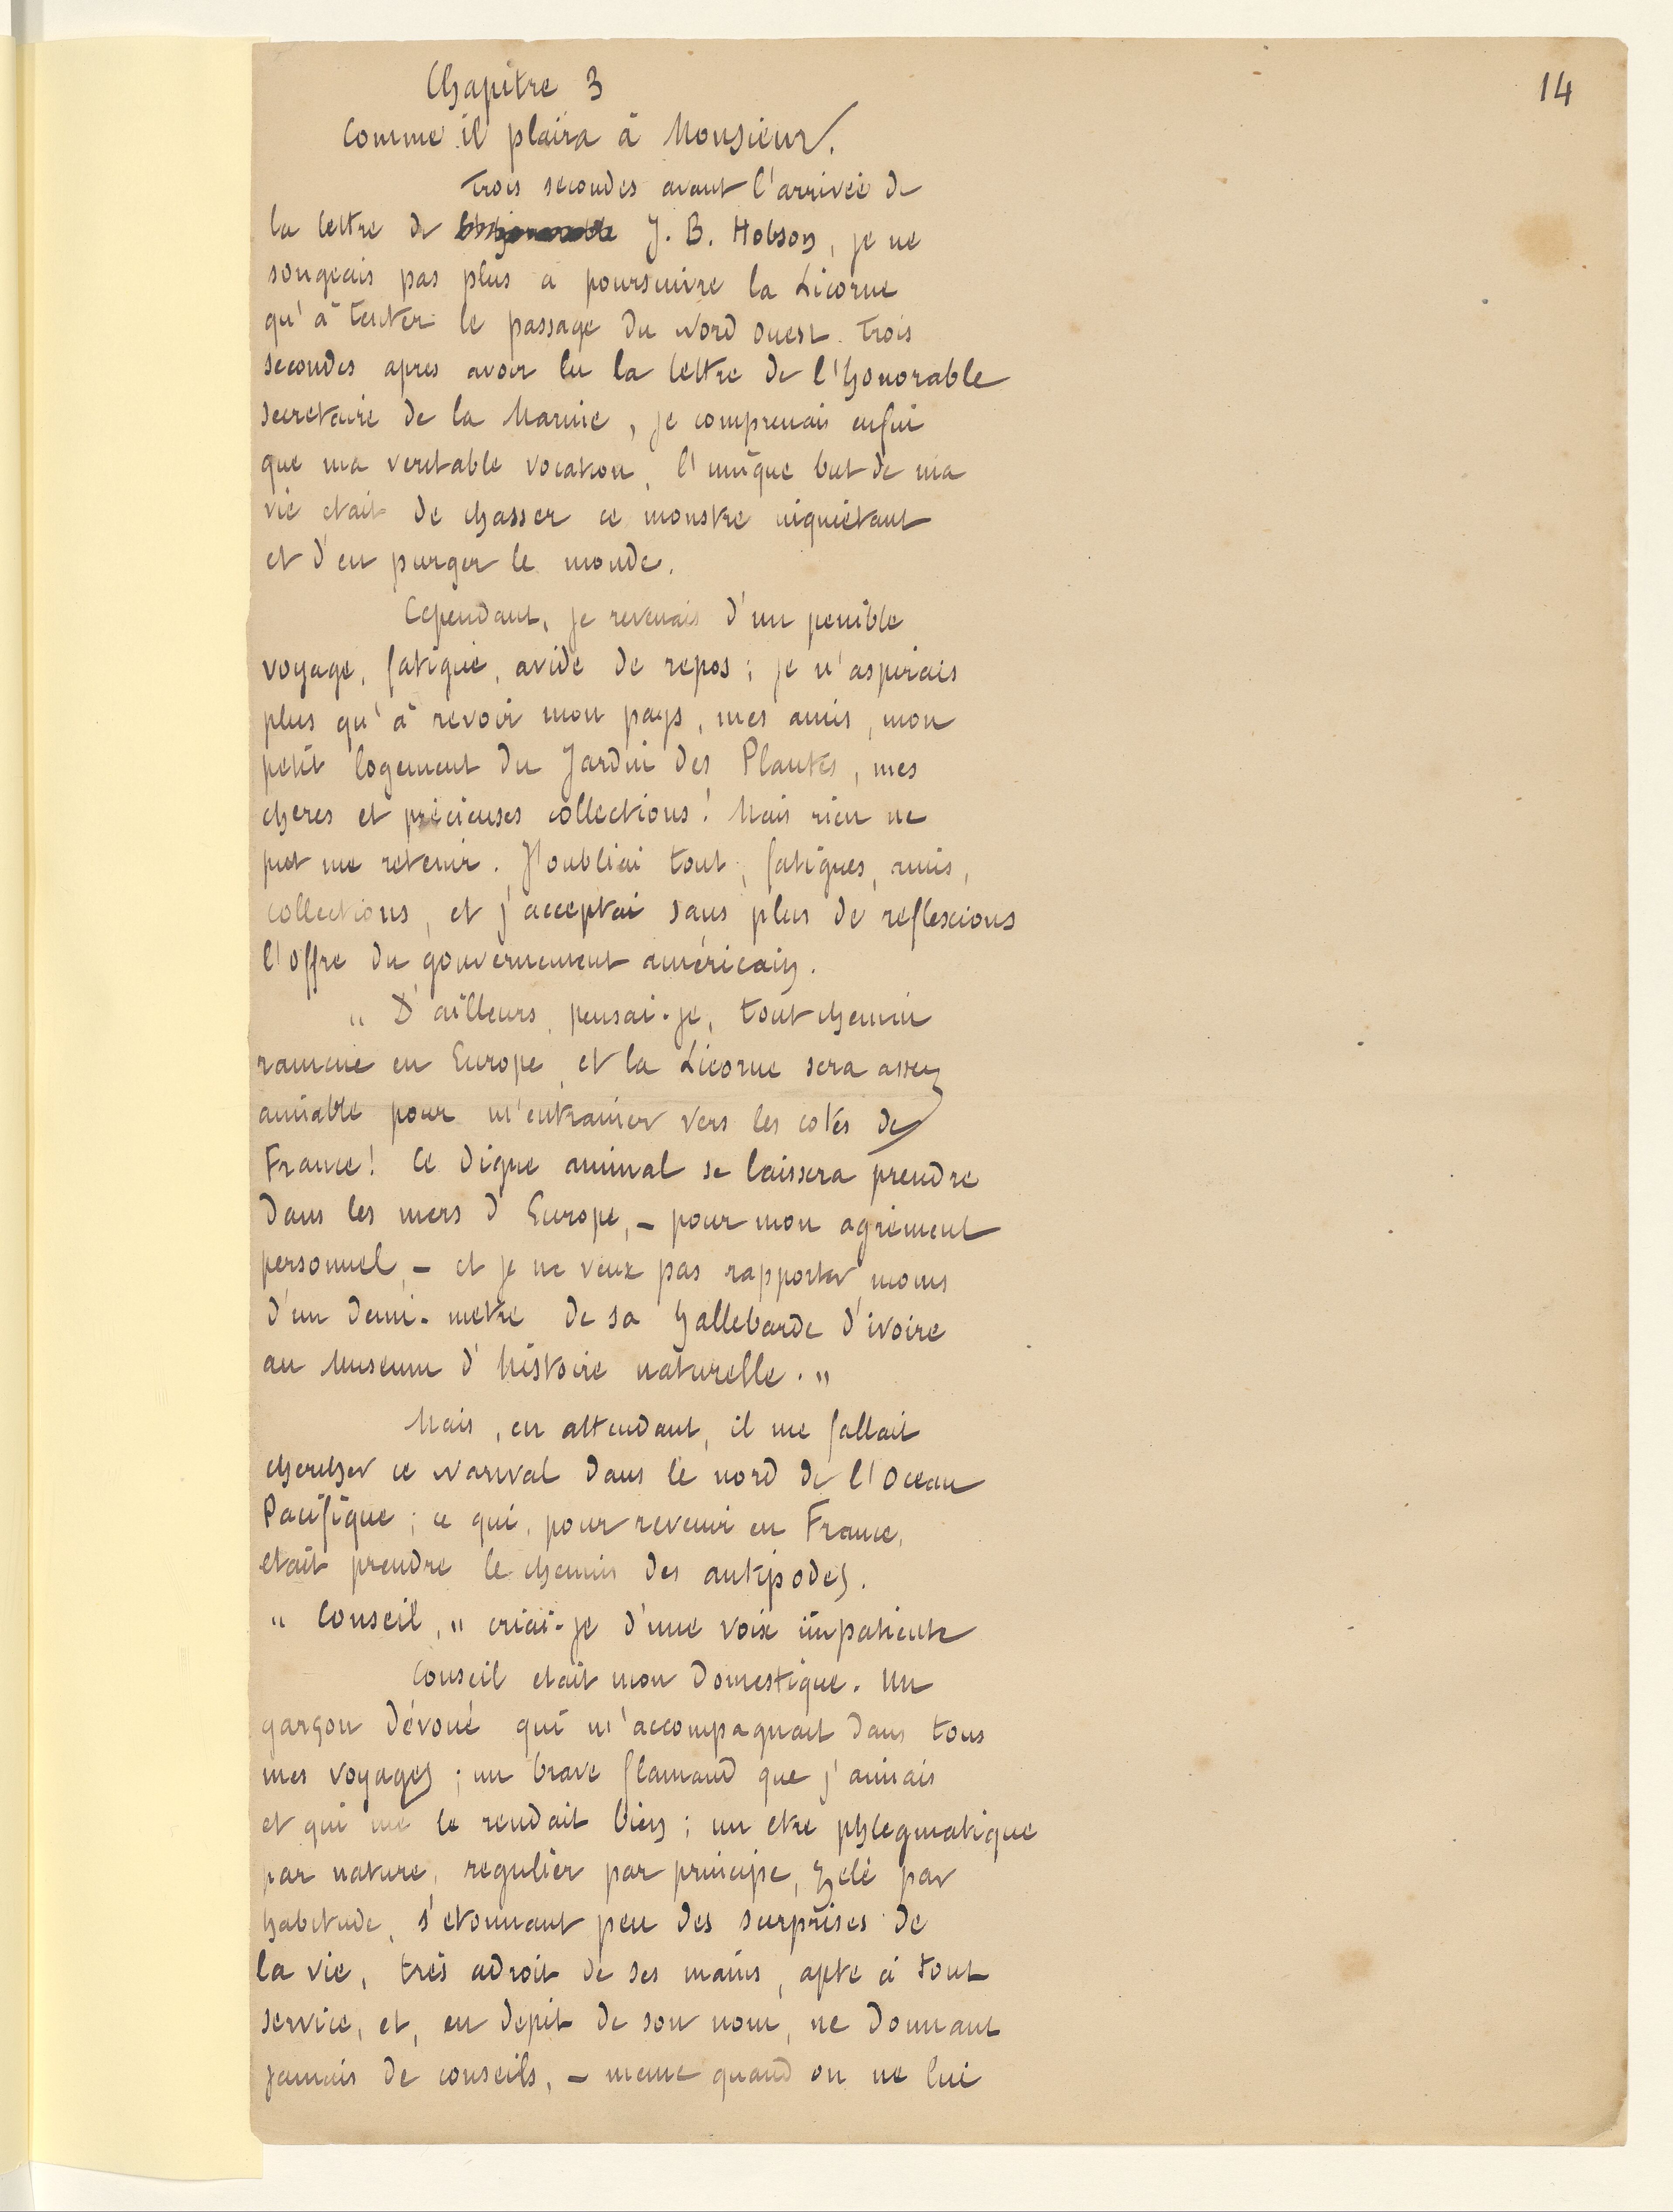 14
Chapitre 3
Comme il plaira à Monsieur.
Trois secondes avant l'arrivée de
la lettre de J. B. Hobson, je ne
songeais pas plus a poursuivre la Licorne
qu'à tenter le passage du Nord ouest. Trois
secondes apres avoir lu la lettre de l'honorable
secretaire de la Marine, je comprenais enfin
que ma veritable vocation, l'unique but de ma
vie etait de chasser ce monstre inquiétant
et d'en purger le monde.
Cependant, je revenais d'un penible
voyage, fatigué, avide de repos ; je n'aspirais
plus qu'à revoir mon pays, mes amis, mon
petit logement du Jardin des Plantes, mes
cheres et précieuses collections ! Mais rien ne
put me retenir. J'oubliai tout, fatigues, amis,
collections, et j'acceptai sans plus de reflexions
l'offre du gouvernement américain.
" D'ailleurs, pensai-je, tout chemin
ramene en Europe, et la Licorne sera assez
aimable pour m'entrainer vers les cotes de
France ! Ce digne animal se laissera prendre
dans les mers d'Europe, - pour mon agrément
personnel, - et je ne veux pas rapporter moins
d'un demi-metre de sa hallebarde d'ivoire
au Museum d'histoire naturelle. "
Mais, en attendant, il me fallait
chercher ce narval dans le nord de l'Ocean
Pacifique ; ce qui, pour revenir en France,
etait prendre le chemin des antipodes.
" Conseil, " criai-je d'une voix impatiente
Conseil etait mon domestique. Un
garçon dévoué qui m'accompagnait dans tous
mes voyages ; un brave flamand que j'aimais
et qui me le rendait bien ; un etre phlegmatique
par nature, regulier par principe, zelé par
habitude, s'etonnant peu des surprises de
la vie, très adroit de ses mains, apte à tout
service, et, en depit de son nom, ne donnant
jamais de conseils, - meme quand on ne lui